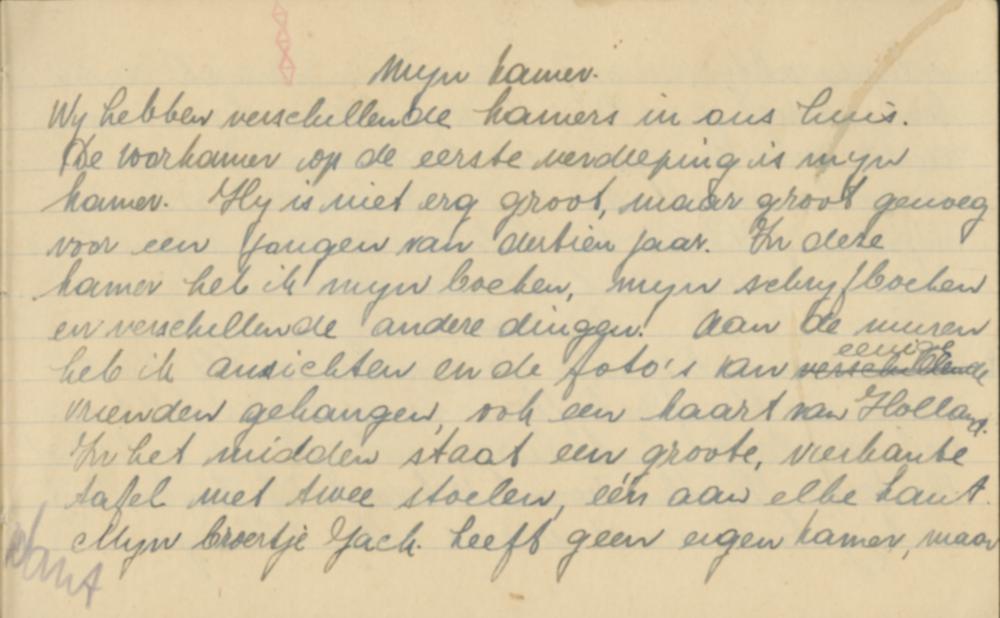 Mijn kamer.
Wij hebben verschillende kamers in ons huis.
De voorkamer op de eerste verdieping is mijn
kamer. Hij is niet erg groot, maar groot genoeg
voor een jongen van dertien jaar. In deze
kamer heb ik mijn boeken, mijn schrijfboeken
en verschillende andere dingen. Aan de muren
heb ik ansichten en de foto's van verschillende eenige
vrienden gehangen, ook een kaart van Holland.
In het midden staat een groote, vierkante
tafel met twee stoelen, één aan elke kant.
Mijn broertje Jack. heeft geen eigen kamer, maar
kant